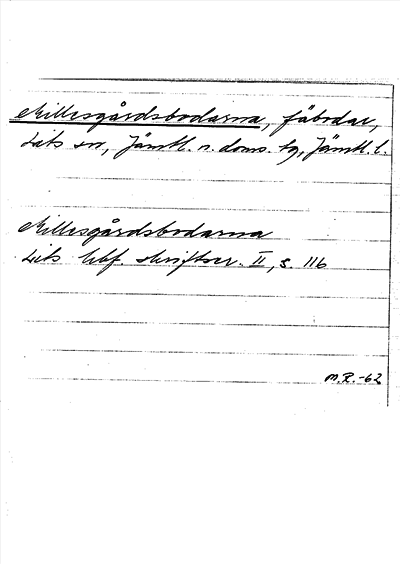 Millesgårdsbodarna, fäbodar,
Lits sn, Jämtl. n. doms. tg, Jämtl. l.
Millesgårdsbodarna
Lits hbf. skriftser. II, s. 116
M.R.-62